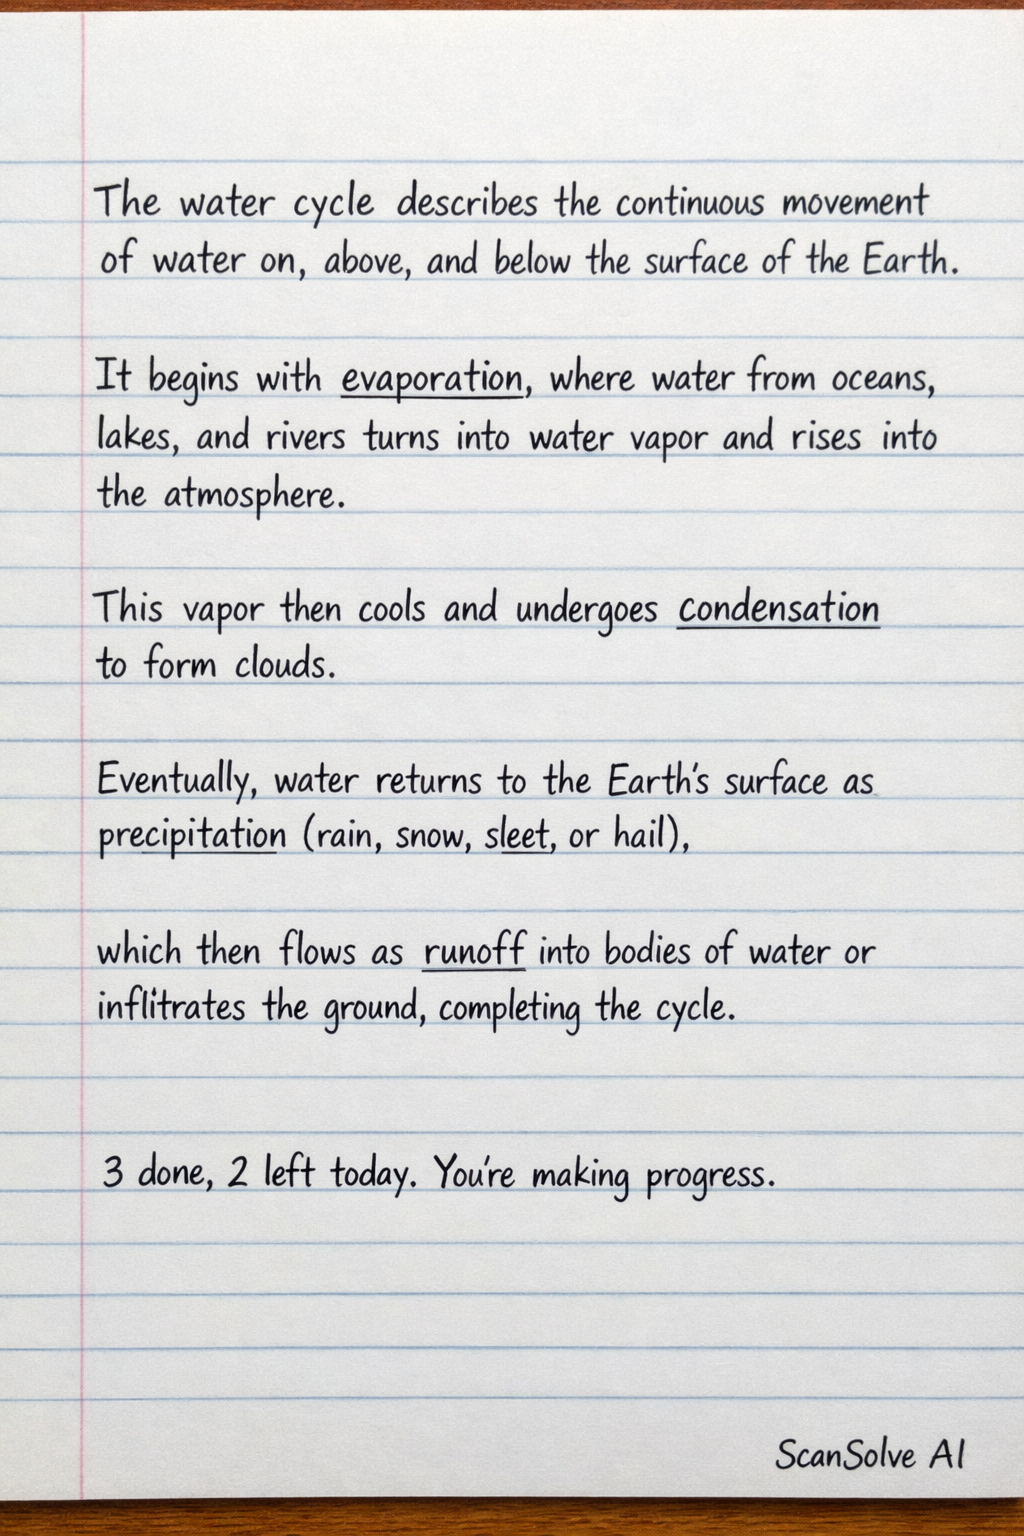 The water cycle describes the continuous movement
of water on, above, and below the surface of the Earth.
It begins with evaporation, where water from oceans,
lakes, and rivers turns into water vapor and rises into
the atmosphere.
This vapor then cools and undergoes condensation
to form clouds.
Eventually, water returns to the Earth's surface as
precipitation (rain, snow, sleet, or hail),
which then flows as runoff into bodies of water or
inflitrates the ground, completing the cycle.
3 done, 2 left today. You're making progress.
ScanSolve AI